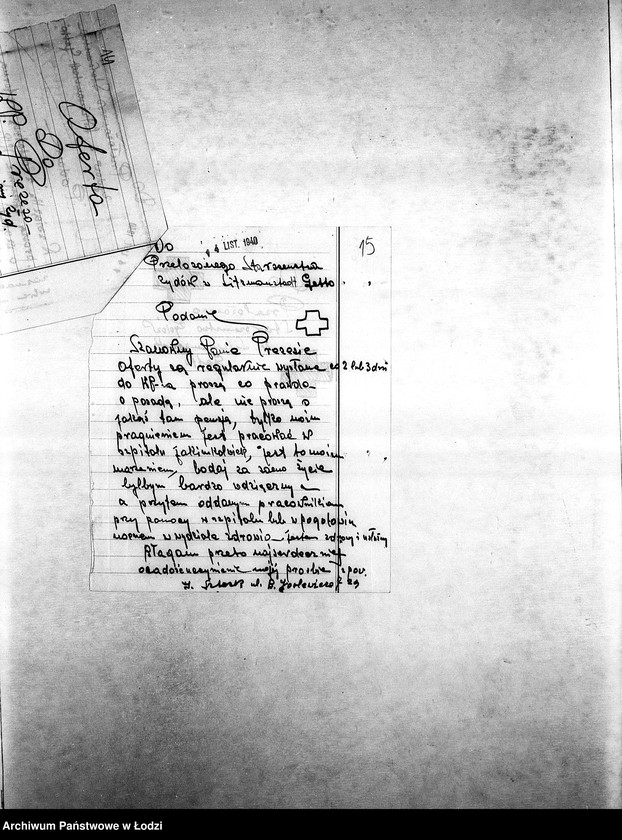 Oferta
Do
Do
14 LIST. 1940
15
Przełożonego Starszeństwa
żydów w Litzmannstadt Getto
Podanie
Szanowny Panie Prezesie
Oferty są regularnie wysłane co 2 lub 3 dni
do KP-ta proszą co prawda
o posadę, ale nie proszą o
jakąś tam pensję, tylko moim
pragnieniem jest pracować w
szpitalu jakimkolwiek, jest to moim
marzeniem, bodaj za samo życie
byłbym bardzo wdzięczny
a przytem oddanym pracownikiem
przy pomocy w szpitalu lub w pogotowiu
nocnem w wydziale zdrowia jestem zdrowy i silny
Błagam przeto najserdeczniej
o zadośćuczynienie mojej prośbie z pow.
ul. B. 29
Archiwum Państwowe w Łodzi